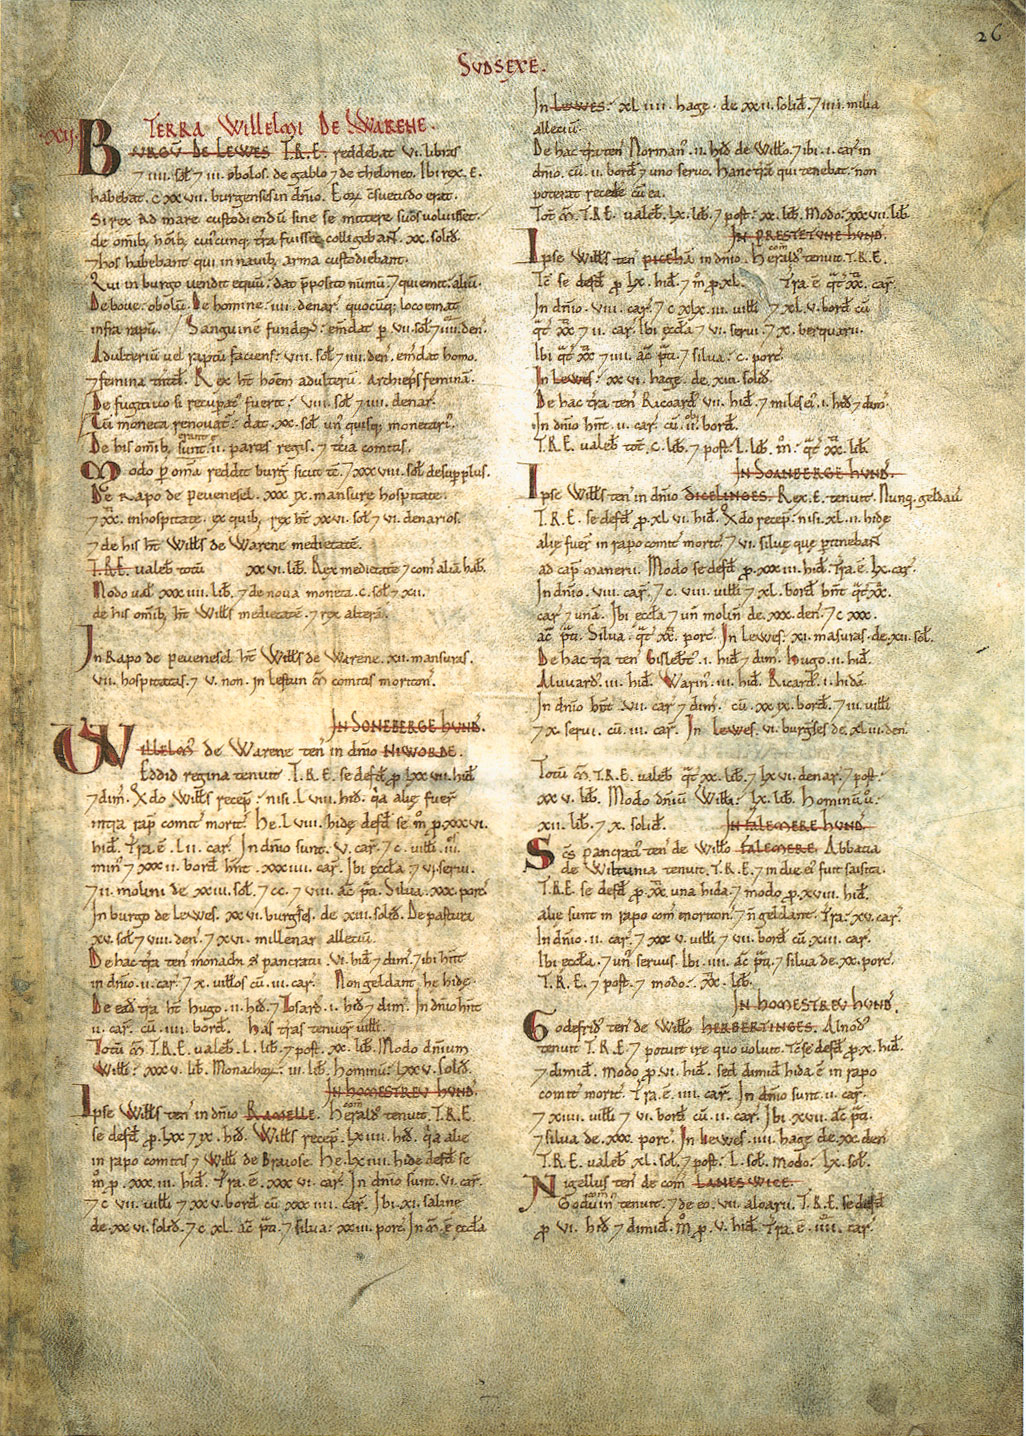 26
SUDSEXE.
XII. TERRA Willelmi De WARENE.
BURGŪ De LEWES T.R.E. reddebat vi. libras
7 iiii. sol 7 iii. obolos. de gablo 7 de theloneo. Ibi rex. E.
habebat. c xx vii. burgenses in dnio. Eoꝝ c̄suetudo erat.
Si rex ad mare custodiendū sine se mittere suos voluisset.
de omib; hōib; cuicunq; tr̄a fuisset colligebant. xx. solid.
7 hos habebant qui in navib; arma custodiebant.
Qui in burgo vendit equū: dat p̄posito nūmū. 7 qui emit: aliū.
De bove. obolū. De homine. iiii. denar. quocūq; loco emat
infra rapū. Sanguinē fundens: em̄dat p. vii. sol. 7 iiii. den.
Adulteriū vel raptū faciens: viii. sol 7 iiii. den. em̄dat homo.
7 femina tn̄td. Rex ht hoēm adulterū. Archiep̄s feminā.
De fugitivo si recup̄at fuerit: viii. sol 7 iiii. denar.
Cū moneta renovat̄: dat xx. sol un̄ quisq; monetari.
De his omīb; erant sunt. ii. partes regis. 7 tcia comitis.
Modo p om̄a reddit burḡ sicut tc̄. 7 xxxviii. sol desup plus.
De Rapo de pevenesel. xxx ix. mansure hospitate.
7 xx. inhospitate. ex quib; rex ht xxvi. sol 7 vi. denarios.
7 de his ht Willꝭs de Warene medietatē.
T.R.E. valeb totū xxvi. lib. Rex medietatē 7 com̄ aliā hab̄.
Modo val xxx iiii. lib. 7 de nova moneta. c. sol 7 xii.
de his omīb; ht Willꝭs medietatē. 7 rex alterā.
In Rapo de pevenesel ht Willꝭs de Warene. xii. mansuras.
vii. hospitatas. 7 v. non. In Lestun m̄ comitis moriton̄.
IN SONEBERGE HUND.
Willelm̄s de Warene ten̄ in dn̄io NIWORDE.
Eddid regina tenuit. T.R.E. se defd p lxx vii. hid
7 dim̄. Qdo Willꝭs recep̄: nisi. L viii. hid. q̄a alię fuer̄
intra rap̄ comit̄ morit̄. He. L viii. hide defd se m̄ p. xxx vi.
hid. Tr̄a. ē. L ii. car̄. In dnio sunt. v. car̄. 7 c. villi. iii.
min̄ 7 xxx ii. bord hnt. xxx iiii. car̄. Ibi eccła 7 vi. servi.
7 ii. molini de xxiii. sol. 7 cc. 7 viii. ac̄ p̄ti. Silva. xxx. porc̄
In burgo de Lewes. xx vi. burgses. de xiii. solid. De pastura
xv. sol 7 viii. den. 7 xvi. millenar̄ allecium.
De hac tr̄a ten̄ monachi S pancratii. vi. hid 7 dim̄. 7 ibi hnt
in dnio. ii. car̄. 7 x. villos cū. iii. car̄. Non geldant he hide.
De ead tr̄a ht hugo. ii. hid. 7 Tosard. i. hid 7 dim̄. In dnio hnt
ii. car̄. cū. iiii. bord. has tr̄as tenuer̄ villi.
Totū m̄. T.R.E. valeb. L. lib. 7 post. xx. lib. Modo dn̄ium
Willi: xxx v. lib. Monachoꝝ: iii. lib. Hominū: Lxx v. solid.
IN HOMESTREU HUND.
Ipse Willꝭs ten̄ in dnio RAMELLE. com̄ Herald tenuit. T.R.E.
se defd p. Lxx 7 ix. hid. Willꝭs recep̄. Lxiiii. hid. q̄a alie
in rapo comitis 7 Willi de Braiose. He. Lxiiii. hide defd se
m̄ p. xxx. iii. hid. Tr̄a. ē. xxx vi. car̄. In dnio sunt. vi. car̄.
7 c vii. villi 7 xx v. bord cū xxx. iiii. car̄. Ibi. xi. saline
de xx vi. solid. 7 c. xl. ac̄ p̄ti. 7 silva: xxiii. porc̄. In m̄. ē eccła
In LEWES: xl iiii. hagę. de xx ii. solid. 7 iiii. milia
alleciū.
De hac tr̄a ten̄ Norman̄. ii. hid de Wiłło. 7 ibi. i. car̄ in
dnio. cū. ii. bord 7 uno servo. Hanc tr̄ā qui tenebat: non
poterat recede cū ea.
Tot m̄. T.R.E. valeb. Lx. lib. 7 post: xx. lib. Modo: xxx vii. lib.
IN PRESTETUNE HUND.
Ipse Willꝭs ten̄ PICEHĀ in dnio. com̄ Herald tenuit. T.R.E.
Tc̄ se defd p Lx. hid. 7 m̄ p. xl. Tr̄a ē q̄t xx. car̄.
In dnio. viii. car̄. 7 c xlx. iii. villi 7 xl. v. bord cū
q̄t xx 7 ii. car̄. Ibi eccła 7 vi. servi. 7 x. berquarii.
Ibi q̄t xx 7 iiii. ac̄ p̄ti. 7 silva: c. porc̄.
In Lewes: xx vi. hagę. de. xiii. solid.
De hac tr̄a ten̄ Ricoard. vii. hid. 7 milites ei. i. hid 7 dim̄.
In dnio hnt. ii. car̄. cū. ii. bord.
T.R.E. valeb tot̄. c. lib. 7 post: L. lib. m̄: q̄t xx. lib.
IN SOANBERGE HUND.
Ipse Willꝭs ten̄ in dnio DICELINGES. Rex. E. tenuit. Nunq̄ geldau
T.R.E. se defd p. xl vi. hid. Qdo recep̄: nisi. xl. ii. hide
alię fuer̄ in rapo comit̄ morit̄. 7 vi. silvę quę p̄tinebant̄
ad cap̄ manerii. Modo se defd p. xxx iii. hid. Tr̄a. ē. Lx. car̄.
In dnio. viii. car̄. 7 c. viii. villi 7 xl. bord hnt q̄t xx.
car̄ 7 unā. Ibi eccła 7 un̄ molin̄ de. xxx. den. 7 c xxx.
ac̄ p̄ti. Silva: q̄t xx. porc̄. In Lewes: xi. masuras. de. xii. sol.
De hac tr̄a ten̄ Gislebt. i. hid 7 dim̄. Hugo. ii. hid.
Aluuard. iii. hid. Warin. iii. hid. Ricard. i. hidā.
In dnio hnt. vii. car̄ 7 dim̄. cū. xx ix. bord. 7 iii. villi
7 x. servi. cū. iii. car̄. In Lewes. vi. burgses de. xl iii. den.
Totū m̄. T.R.E. valeb q̄t xx. lib. 7 Lx vi. denar. 7 post:
xx v. lib. Modo dn̄iū Willi: Lx. lib. Hominū ū:
xii. lib. 7 x. solid. IN FALEMERE HUND.
Scs pancrati ten̄ de Wiłło FALEMERE. Abbatia
de Wiltunia tenuit. T.R.E. 7 in die ei fuit saisita.
T.R.E. se defd p. xx. una hida. 7 modo p. xviii. hid.
alię sunt in rapo com̄ moriton̄. 7 n̄ geldant. Tr̄a: xv. car̄.
In dnio. ii. car̄. 7 xxx v. villi 7 vii. bord cū. xiii. car̄.
Ibi eccła. 7 un̄ servus. Ibi. iiii. ac̄ p̄ti. 7 silva de. xx. porc̄.
T.R.E. 7 post. 7 modo: xx. lib.
IN HOMESTREU HUND.
Godefrid ten̄ de Wiłło HERBERTINGES. Alnod
tenuit T.R.E. 7 potuit ire quo voluit. Tc̄ se defd p. x. hid.
7 dimid. modo. p vi. hid. sed dimid hida. ē in rapo
comit̄ morit̄. Tr̄a. ē. iiii. car̄. In dnio sunt. ii. car̄.
7 xiiii. villi 7 vi. bord cū. ii. car̄. Ibi xvii. ac̄ p̄ti.
7 silva de. xxx. porc̄. In Lewes. iiii. hagę de. xx den̄
T.R.E. valeb. xl. sol. 7 post: L. sol. modo: Lx. sol.
Nigellus ten̄ de com̄ LANESWICE.
com̄ Goduin tenuit. 7 de eo. vii. aloarii. T.R.E. se defd
p vi. hid 7 dimid. m̄ p. v. hid. Tr̄a. ē. iiii. car̄.